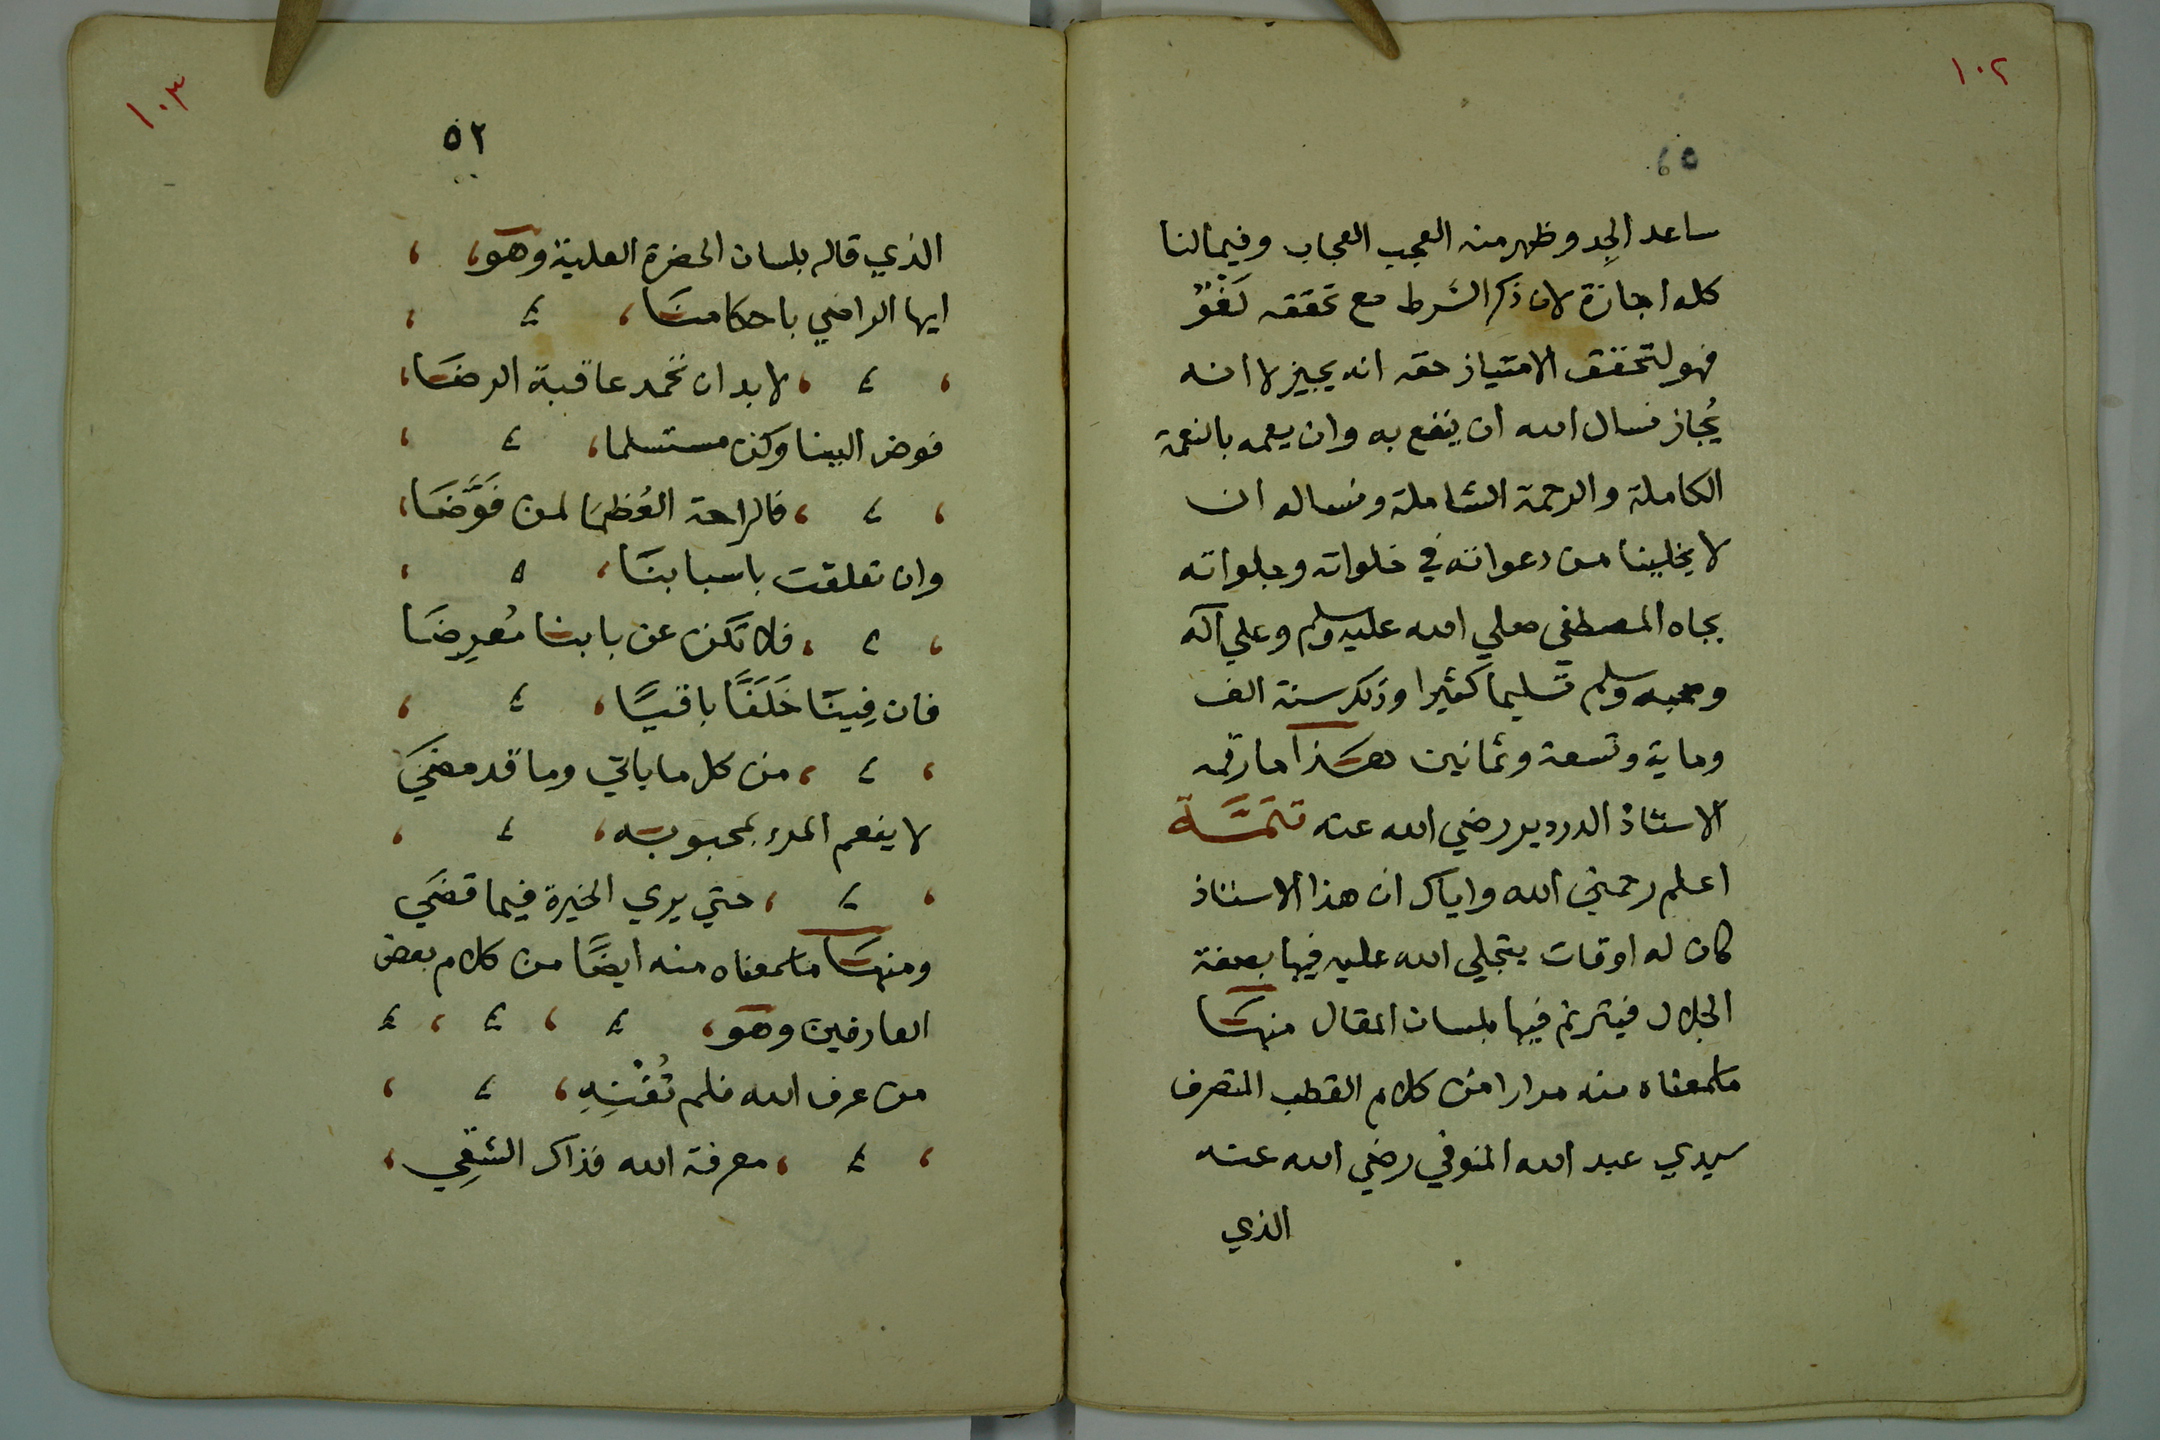 ١٠٢
ساعد الجِد وظهر منه العجب العجاب وفيما لنا
كله اجازة لان ذكر الشرط مع تحققه لَغْوٌ
فهو لتحقق الامتياز حقه انه يجيز لا انه
يُجاز نسال الله ان ينفع به وان يعمه بالنعمة
الكاملة والرحمة الشاملة ونساله ان
لا يخلينا من دعواته في خلواته وجلواته
بجاه المصطفي صلي الله عليه وسلم وعلي آله
وصحبه وسلم تسليما كثيرا وذلك سنة الف
وماية وتسعة وثمانين هذا ما رقمه
الاستاذ الدردير رضي الله عنه تتمَّة
اعلم رحمني الله واياك ان هذا الاستاذ
كان له اوقات يتجلي الله عليه فيها بصفة
الجلال فيترنم فيها بلسان المقال منها
ما سمعناه منه مرارا من كلام القطب المتصرف
سيدي عبد الله المنوفي رضي الله عنه
الذي
١٠٣
٥٢
الذي قاله بلسان الحضرة العلية وهو،
ايها الراضي باحكامنا،
لابد ان تحمد عاقبة الرضا،
فوض الينا وكن مستسلما،
فالراحة العُظمَا لمن فَوَّضَا،
وان تعلقت باسبابنا،
فلا تكن عن بابنا مُعرِضَا
فان فِينَا خَلَفًا باقيًا،
من كل ما ياتي وما قد مضيَ
لا ينعم المرء بمحبوبه،
حتي يري الخيرة فيما قضيَ
ومنها ما سمعناه منه ايضًا من كلام بعض
العارفين وهو،
من عرف الله فلم تُغْنِهِ،
معرفة الله فذاك الشقِي،